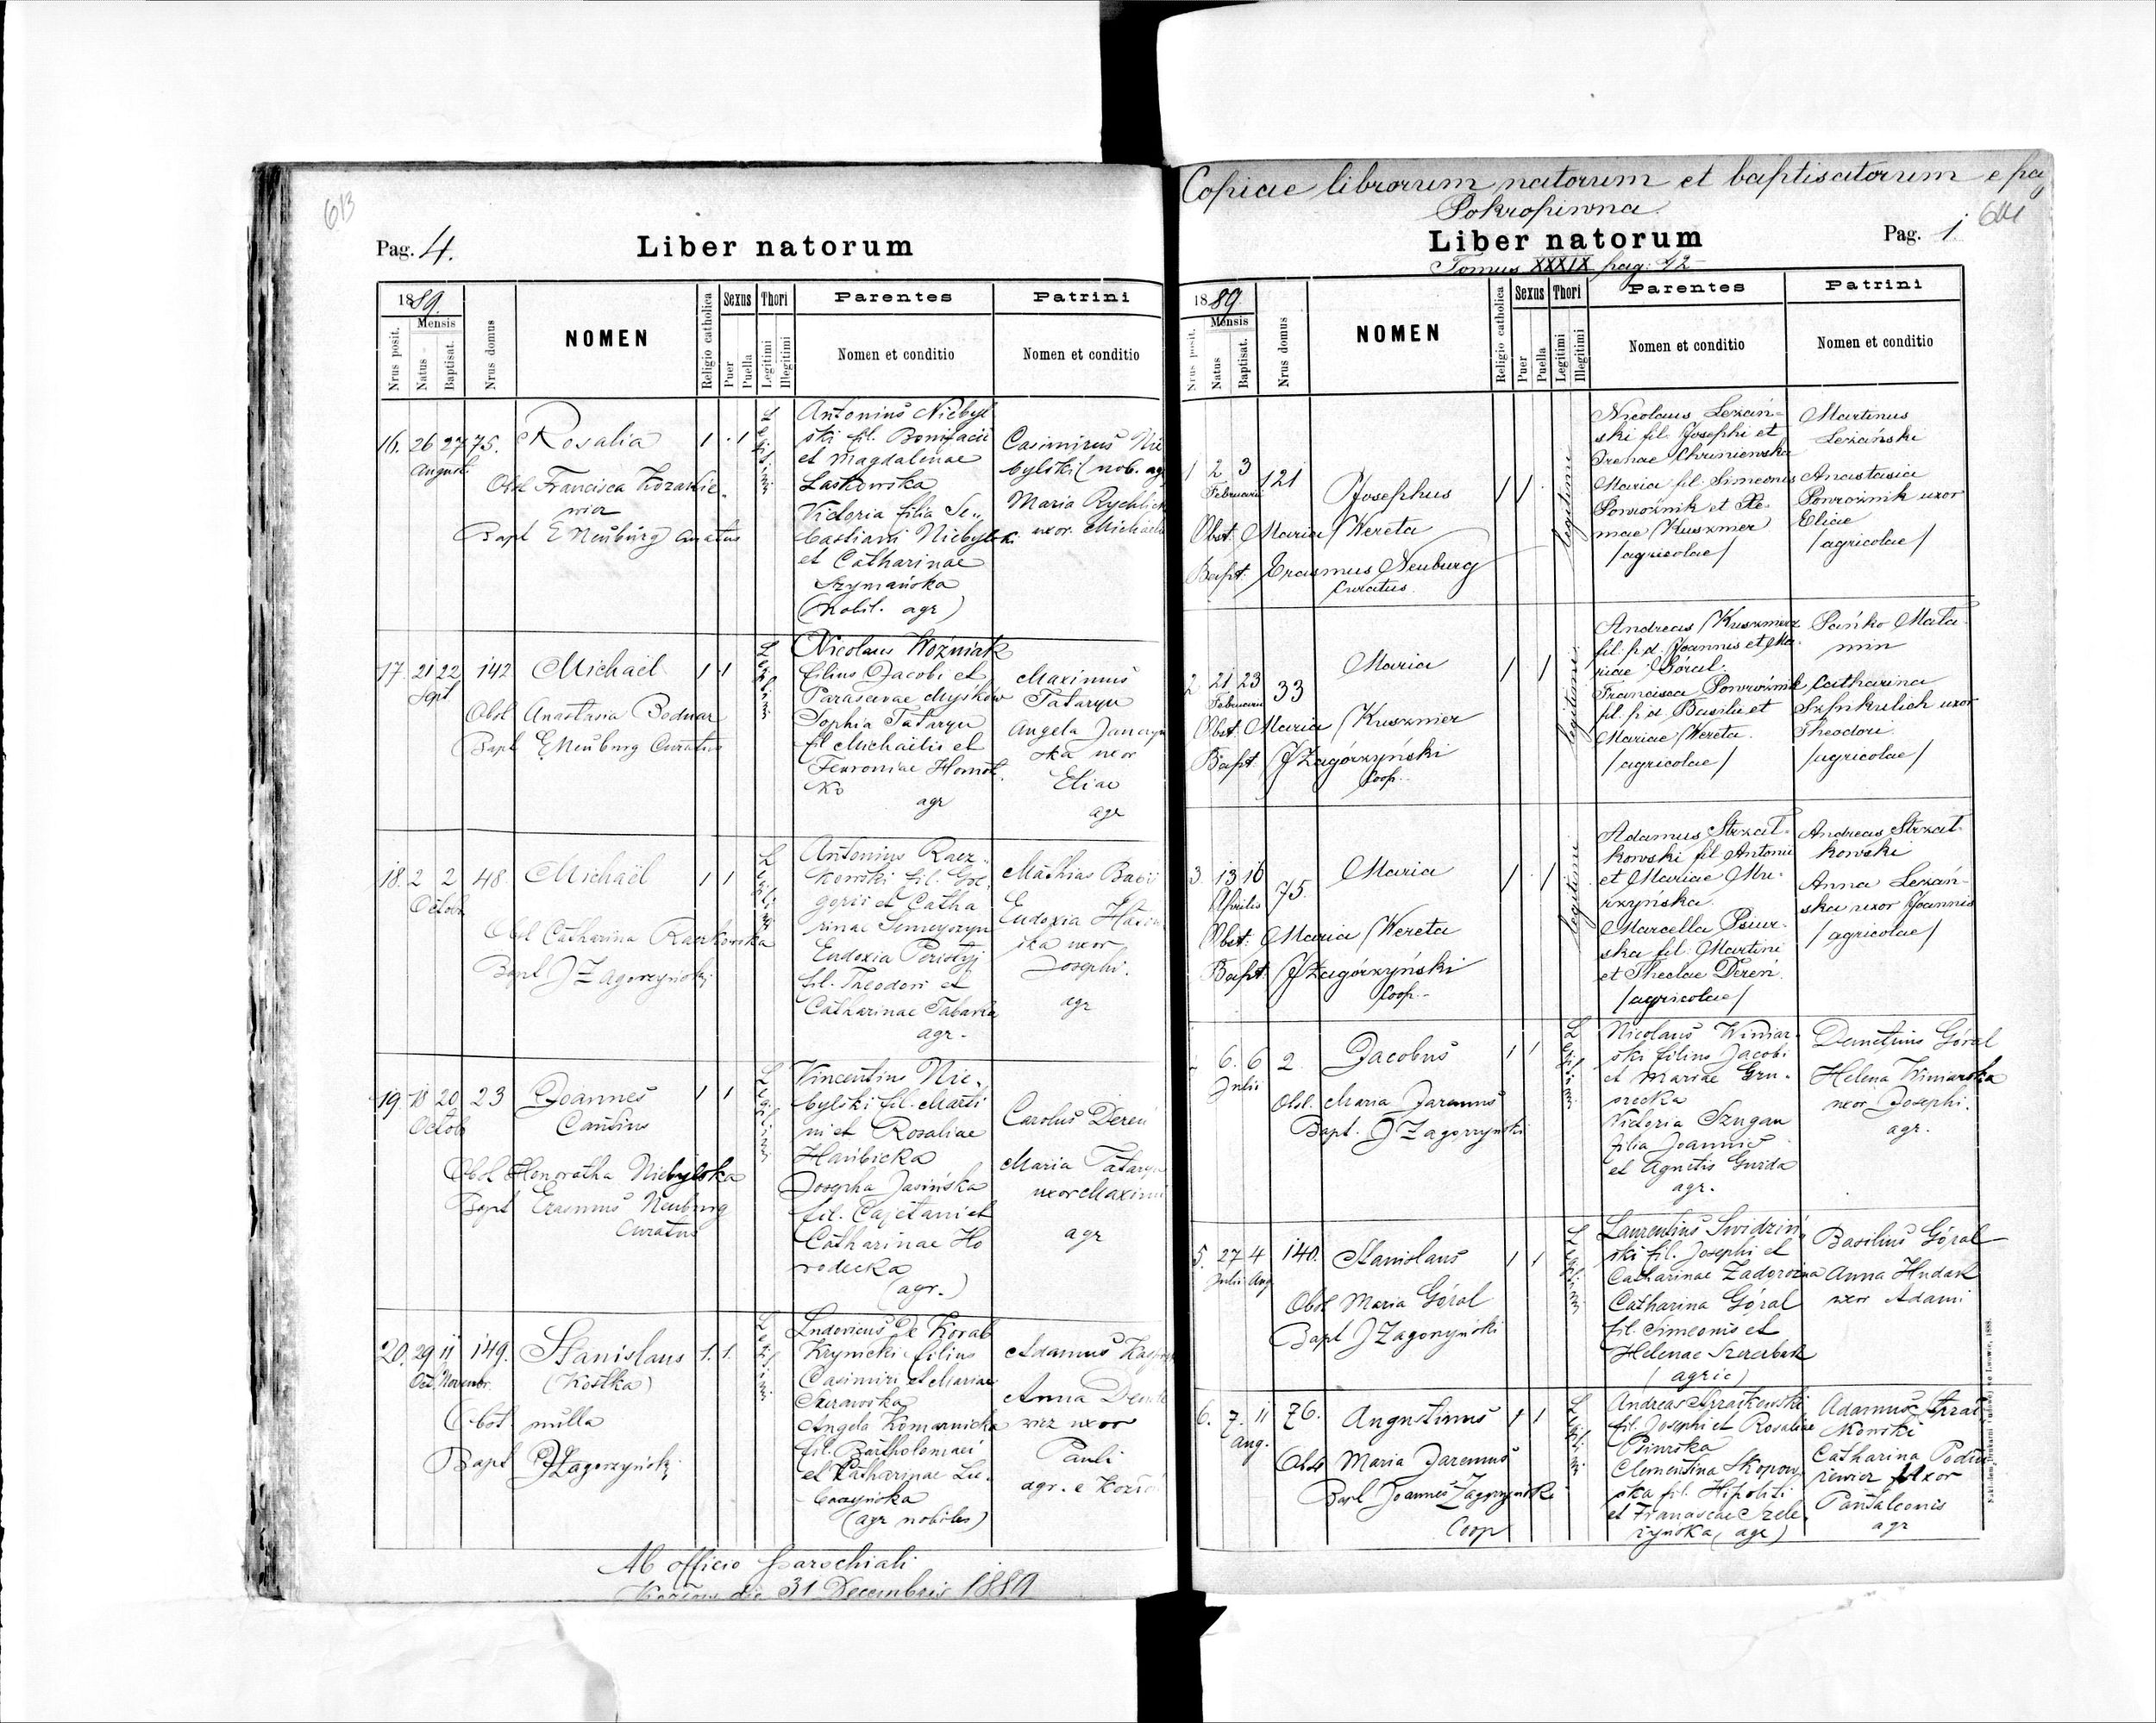 613
Pag. 4.
Liber natorum
1889.
Nrus posit.
Mensis
Natus
Baptisat.
Nrus domus
NOMEN
Religio catholica
Sexus
Puer
Puella
Thori
Legitimi
Illegitimi
Parentes
Nomen et conditio
Patrini
Nomen et conditio
16. 26 27 75. Rosalia 1 . 1
August.
Obst Francisca Kozakie
wicz
Bapt E Neuburg Curatus
Legitimi
Antonius Niebyl
ski fil. Bonifacii
et Magdalenae
Laskowska
Victoria filia Se„
bastiani Niebylski
et Catharinae
Szymańska
(nobil. agr)
Casimirus Nie
bylski (nob. agr
Maria Rychlick
uxor Michaelis
17. 21 22 142 Michaël 1 1
Sept
Obst Anastasia Bodnar
Bapt E Neuburg Curatus
Legitimi
Nicolaus Woźniak
filius Jacobi et
Parascevae Myśków
Sophia Tataryn
fil Michaëlis et
Fevroniae Homot
ko
agr
Maximus
Tataryn
Angela
ska uxor
Eliae
agr
18. 2 2 48. Michaël 1 1
Octob
Obst Catharina Raczkowska
Bapt J Zagorzyński
Legitimi
Antonius Racz„
kowski fil. Gre„
gorii et Catha
rinae
Eudoxia
fil. Theodori et
Catharinae Tabarka
agr.
Mathias
Eudoxia
ska uxor
Josephi.
agr
19. 18 20 23 Joannes 1 1
Octob Cantius
Obst Honoratha Niebylska
Bapt Erasmus Neuburg
Curatus
Legitimi
Vincentius Nie„
bylski fil. Marti
ni et Rosaliae
Harbicka
Josepha Jasińska
fil. Cajetani et
Catharinae Ho
rodecka
(agr.)
Carolus Dereń
Maria Tataryn
uxor Maximi
agr
20. 29 11 149. Stanislaus 1. 1.
Oct. Novembr. (Kostka)
Obst. nulla
Bapt J Zagorzyński
Legitimi
Ludovicus De Korab
Krynicki filius
Casimiri et Mariae
Angela Komarnicka
fil. Bartholomaei
et Catharinae Lu„
(agr nobiles)
Adamus
Anna
wicz uxor
Pauli
agr. e
Ab officio parochiali
die 31 Decembris 1889
Copiae librorum natorum et baptisatorum e pag
Pokropiwna
614
Liber natorum
Pag. 1.
Tomus XXXIX pag: 42
1889
Nrus posit.
Mensis
Natus
Baptisat.
Nrus domus
NOMEN
Religio catholica
Sexus
Puer
Puella
Thori
Legitimi
Illegitimi
Parentes
Nomen et conditio
Patrini
Nomen et conditio
1 2 3 121 Josephus 1 1 .
Februarii
Obst. Maria Wereta
Bapt. Erasmus Neuburg
Curatus.
legitimi
Nicolaus Leżań=
ski fil. Josephi et
Irenae Chruniewska
Maria fil. Simeonis
Powroźnik et Xe-
niae Kuszmer
/agricolae/
Martinus
Leżański
Anastasia
Powroźnik uxor
Eliae
/agricolae/
2 21 23 33 Maria 1 1
Februarii
Obst. Maria Kuszmier
Bapt. J Zagórzyński
Coop.
legitimi
Andreas Kuszmierz
fil. p.d. Joannis et Ma-
riae Góral.
Francisca Powroźnik
fil. p.d. Basilii et
Mariae Wereta
/agricolae/
Pańko Mala-
min
Catharina
uxor
Theodori.
/agricolae/
3. 13 16 75. Maria 1 . 1
Aprilis
Obst. Maria Wereta
Bapt. J Zagórzyński
Coop.
legitimi
Adamus Strzał-
kowski fil Antonii
et Mariae Mu-
rzyńska.
Marcella Psiur-
ska fil. Martini
et Theclae Dereń.
/agricolae/
Andreas Strzał-
kowski
Anna Leżań-
ska uxor Joannis
/agricolae/
6. 6 2 Jacobus 1 1
Julii
Obst. Maria Jaremus
Bapt. J Zagorzyński
Legitimi
Nicolaus Winiar„
ski filius Jacobi
et Mariae Gru„
Victoria Szugan
filia Joannis
et Agnetis Gwida
agr.
Demetrius Góral
Helena Winiarska
uxor Josephi.
agr.
5. 27 4 140. Stanislaus 1 1
Julii Aug
Obst Maria Góral
Bapt J Zagorzyński
Legitimi
Laurentius Swidziń„
ski fil. Josephi et
Catharinae Zadorozna
Catharina Góral
fil. Simeonis et
Helenae Szczerbak
(agric)
Basilius Góral
Anna Hudak
uxor Adami
6. 7. 11 76. Augustinus 1 1
Aug.
Obst Maria Jaremus
Bapt Joannes Zagorzyński
Coop
Legitimi
Andreas Strzałkowski
fil. Josephi et Rosaliae
Psiurska
Clementina Skopow
ska fil. Hipoliti
et Franciscae Szele„
żyńska (agr)
Adamus Strzał
kowski
Catharina
uxor
Pantaleonis
agr